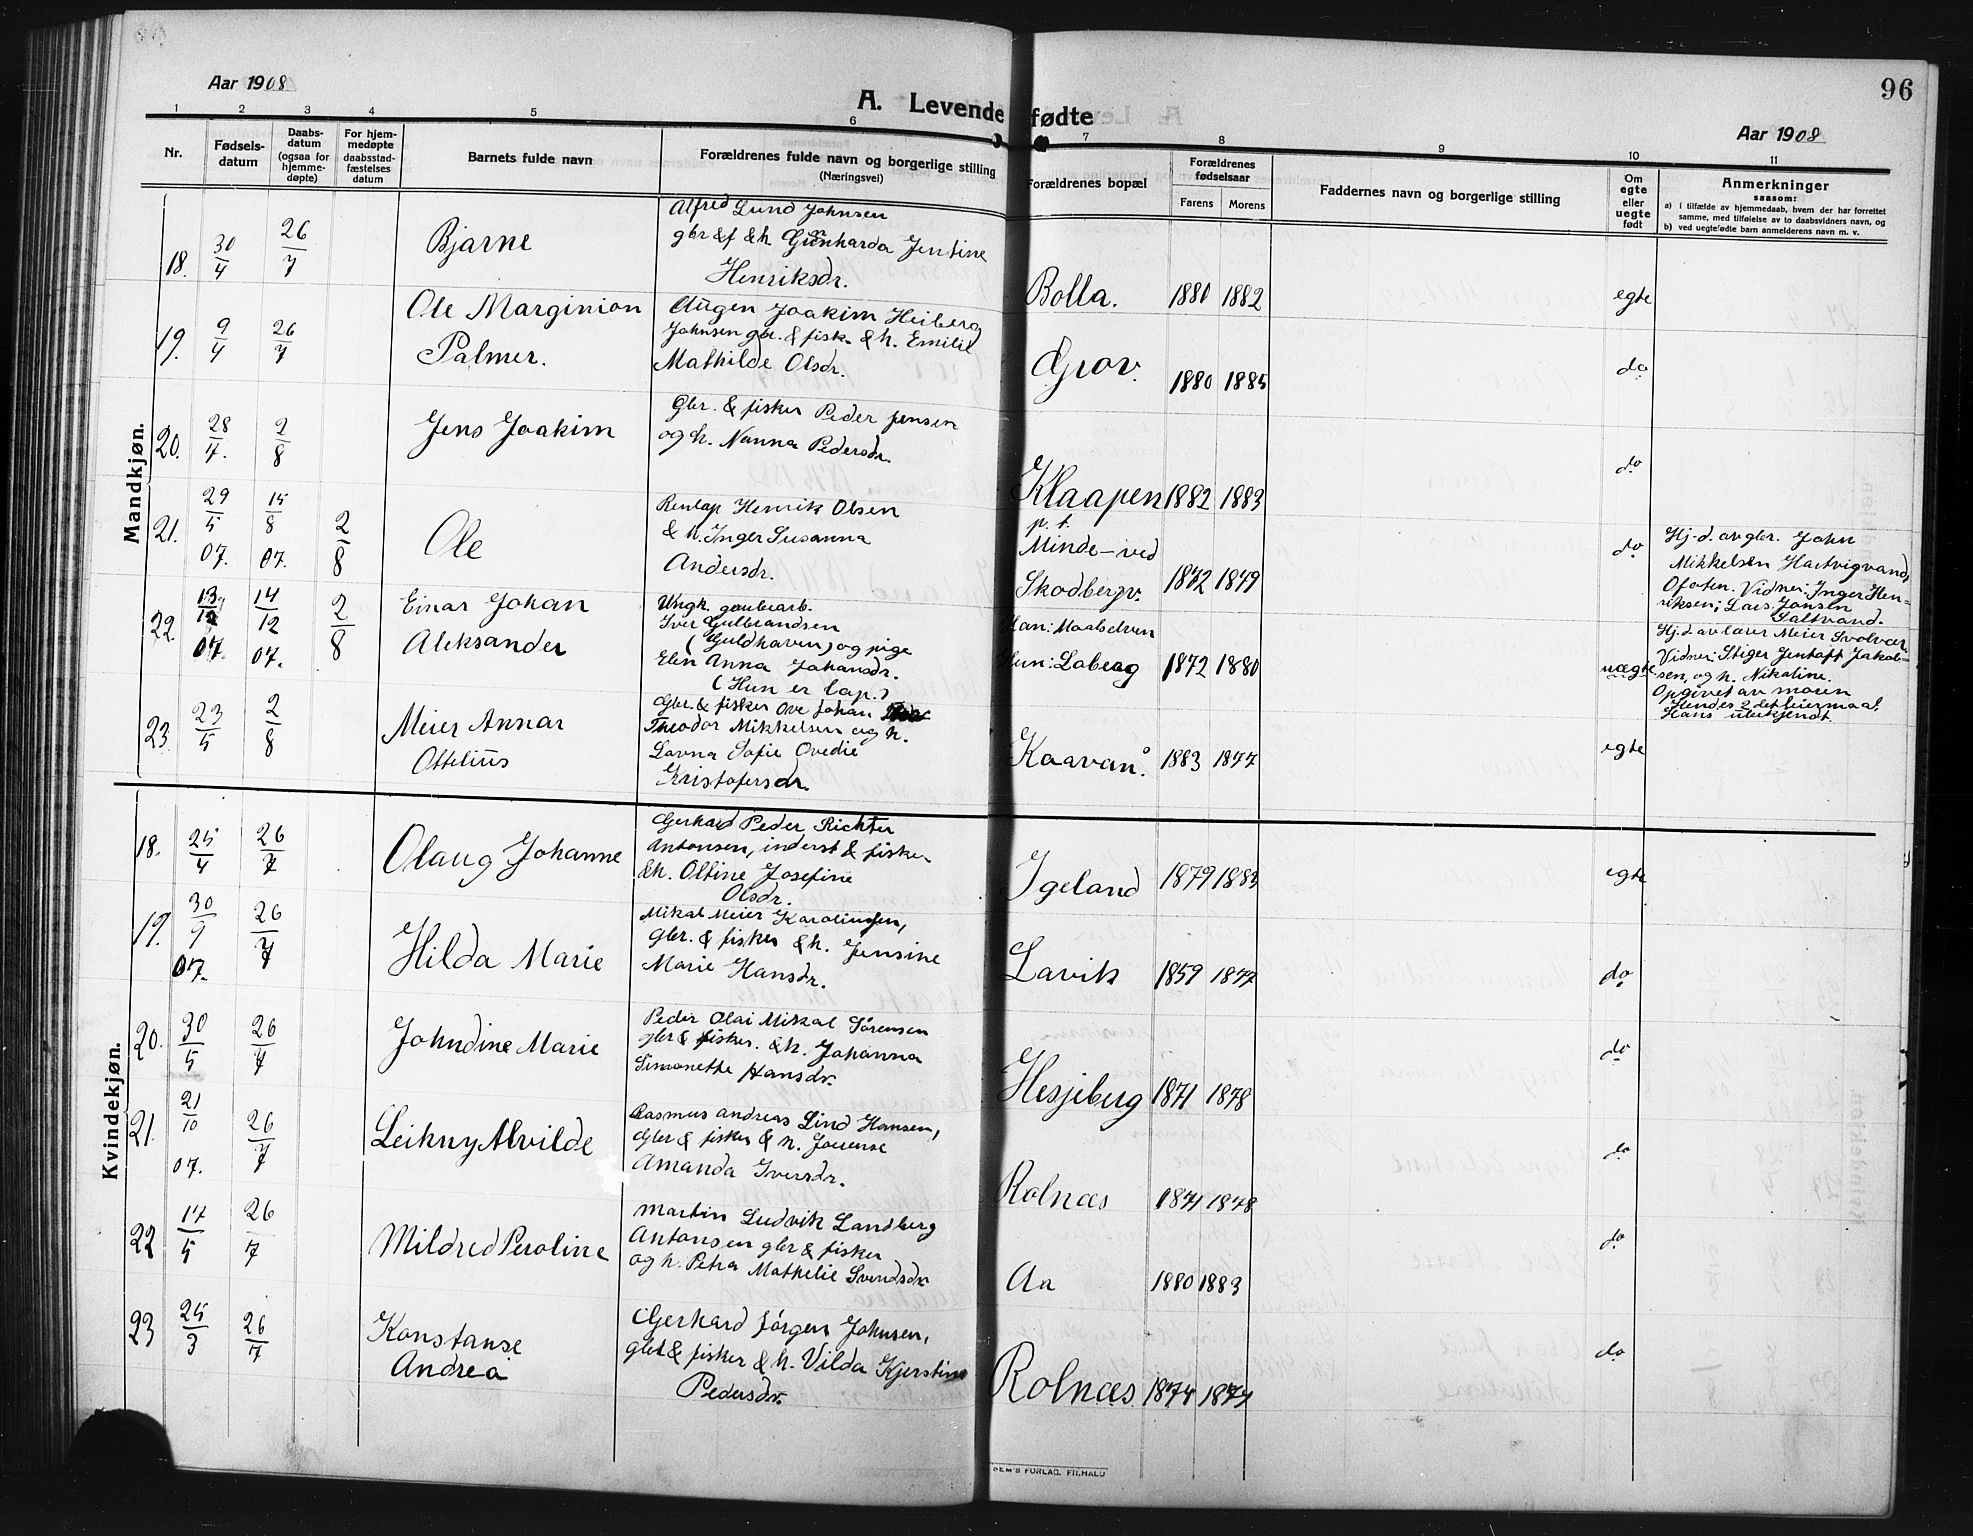 Aar 1908
A. Levende fødte
96
Aar 1908
1 2 3 4 5 6 7 8 9 10 11
Nr.
Fødsels-
datum
Daabs-
datum
(ogsaa for
hjemme-
døpte)
For hjem-
medøpte
daabsstad-
fæstelses
datum
Barnets fulde navn
Forældrenes fulde navn og borgerlige stilling
(Næringsvei)
Forældrenes bopæl
Forældrenes
fødselsaar
Farens Morens
Faddernes navn og borgerlige stilling
Om
egte
eller
uegte
født
Anmerkninger
saasom:
a) i tilfælde av hjemmedaab, hvem der har forrettet
samme, med tilføielse av to daabsvidners navn, og
b) ved uegtefødte barn anmelderens navn m. v.
Mandkjøn.
18. 30/4 26/7 Bjarne
Alfred Lund Johnsen
gbr & f & h. Gunharda Jentine
Henriksdr.
Bolla. 1880 1882 egte
19. 9/4 26/7 Ole Marginion
Palmer.
Augen Joakim Heiberg
Johnsen gbr. & fisk. & h. Emilie
Mathilde Olsdr.
Grov. 1880 1885 do
20. 28/7. 2/8 Jens Joakim
Gbr. & fisker Peder Jensen
og h. Nanna Pedersdr.
Klaapen 1882 1883 do
21. 29/5 07. 15/8 07. 2/8 Ole
Renlap Henrik Olsen
& h. Inger Susanna
Andersdr.
p. t.
Minde-ved
Skodbergv. 1872 1879 do
Hj.d. av gbr. John
Mikkelsen Hartvigvand,
Ofoten. Vidner: Inger Hen-
riksen; Lars Jonsen
Saltvand.
22. 13/12 07. 14/12 07. 2/8 Einar Johan
Aleksander
Ungk. grubearb.
Iver Gulbrandsen
(Guldhaven) og pige
Elen Anna Johansdr.
(Hun er lap.)
Han: Maalselven
Hun: Laberg 1872 1880 uægte
Hj.d. av lærer Meier Svolvær.
Vidner: Stiger Jentoft Jakob-
sen, og h. Nikoline.
Opgivet av moren
Hendes 2det leiermaal.
Hans ubekjendt.
23. 23/5 2/8 Meier Annar
Ottelius
Gbr. & fisker Ove Johan
Theodor Mikkelsen og h.
Lovna Sofie Ovedie
Kristofersdr.
Kaavan. 1883 1877 egte
Kvindekjøn.
18. 25/4 26/7 Olaug Johanne
Gerhard Peder Richter
Antonsen, inderst & fisker
& h. Oltine Josefine
Olsdr.
Igeland 1879 1883 egte
19. 30/9 07. 26/7 Hilda Marie
Mikal Meier Karoliussen,
gbr. & fisker & h. Jensine
Marie Hansdr.
Lavik 1859 1877 do
20. 30/5 26/7 Johndine Marie
Peder Olai Mikal Sörensen
gbr & fisker. & h. Johanna
Simonette Hansdr.
Hesjeberg 1871 1878 do
21. 21/10 07. 26/7 Leikny Alvilde
Rasmus Andreas Lind Hansen,
Gbr & fisker & h. Jörense
Amanda Iversdr.
Rolnæs 1871 1878 do
22 17/5 26/7 Mildred Peroline
Martin Ludvik Landberg
Antonsen gbr & fisker
og h. Petra Mathelie Svendsdr.
Aa 1880 1883 do
23 25/3 26/7 Konstanse
Andrea
Gerhard Jörgen Johnsen,
gbr & fisker & h. Vilda Kjerstine
Pedersdr.
Rolnæs. 1874 1877 do
SEM'S FORLAG, FR.HALD